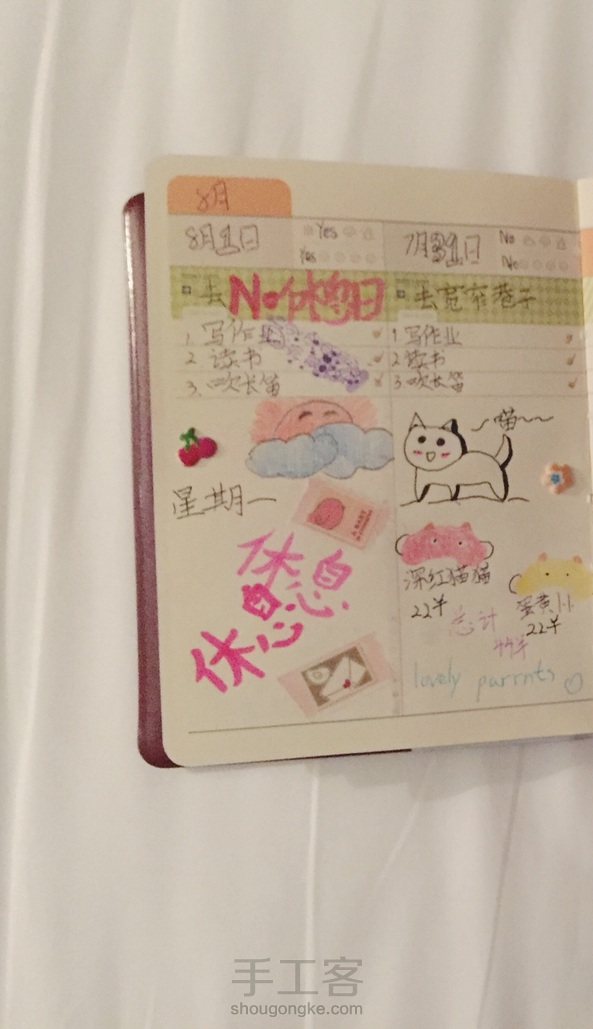 8月
8月1日
Yes
Yes
去No休息日
1. 写作业
2 读书
3. 吹长笛
星期一
休息
休息
7月31日
No
No
去宽窄巷子
1 写作业
2 读书
3 吹长笛
~喵~~
深红猫猫
22羊
蛋黄
22羊
总计
44羊
lovely parrnts
手工客
shougongke.com